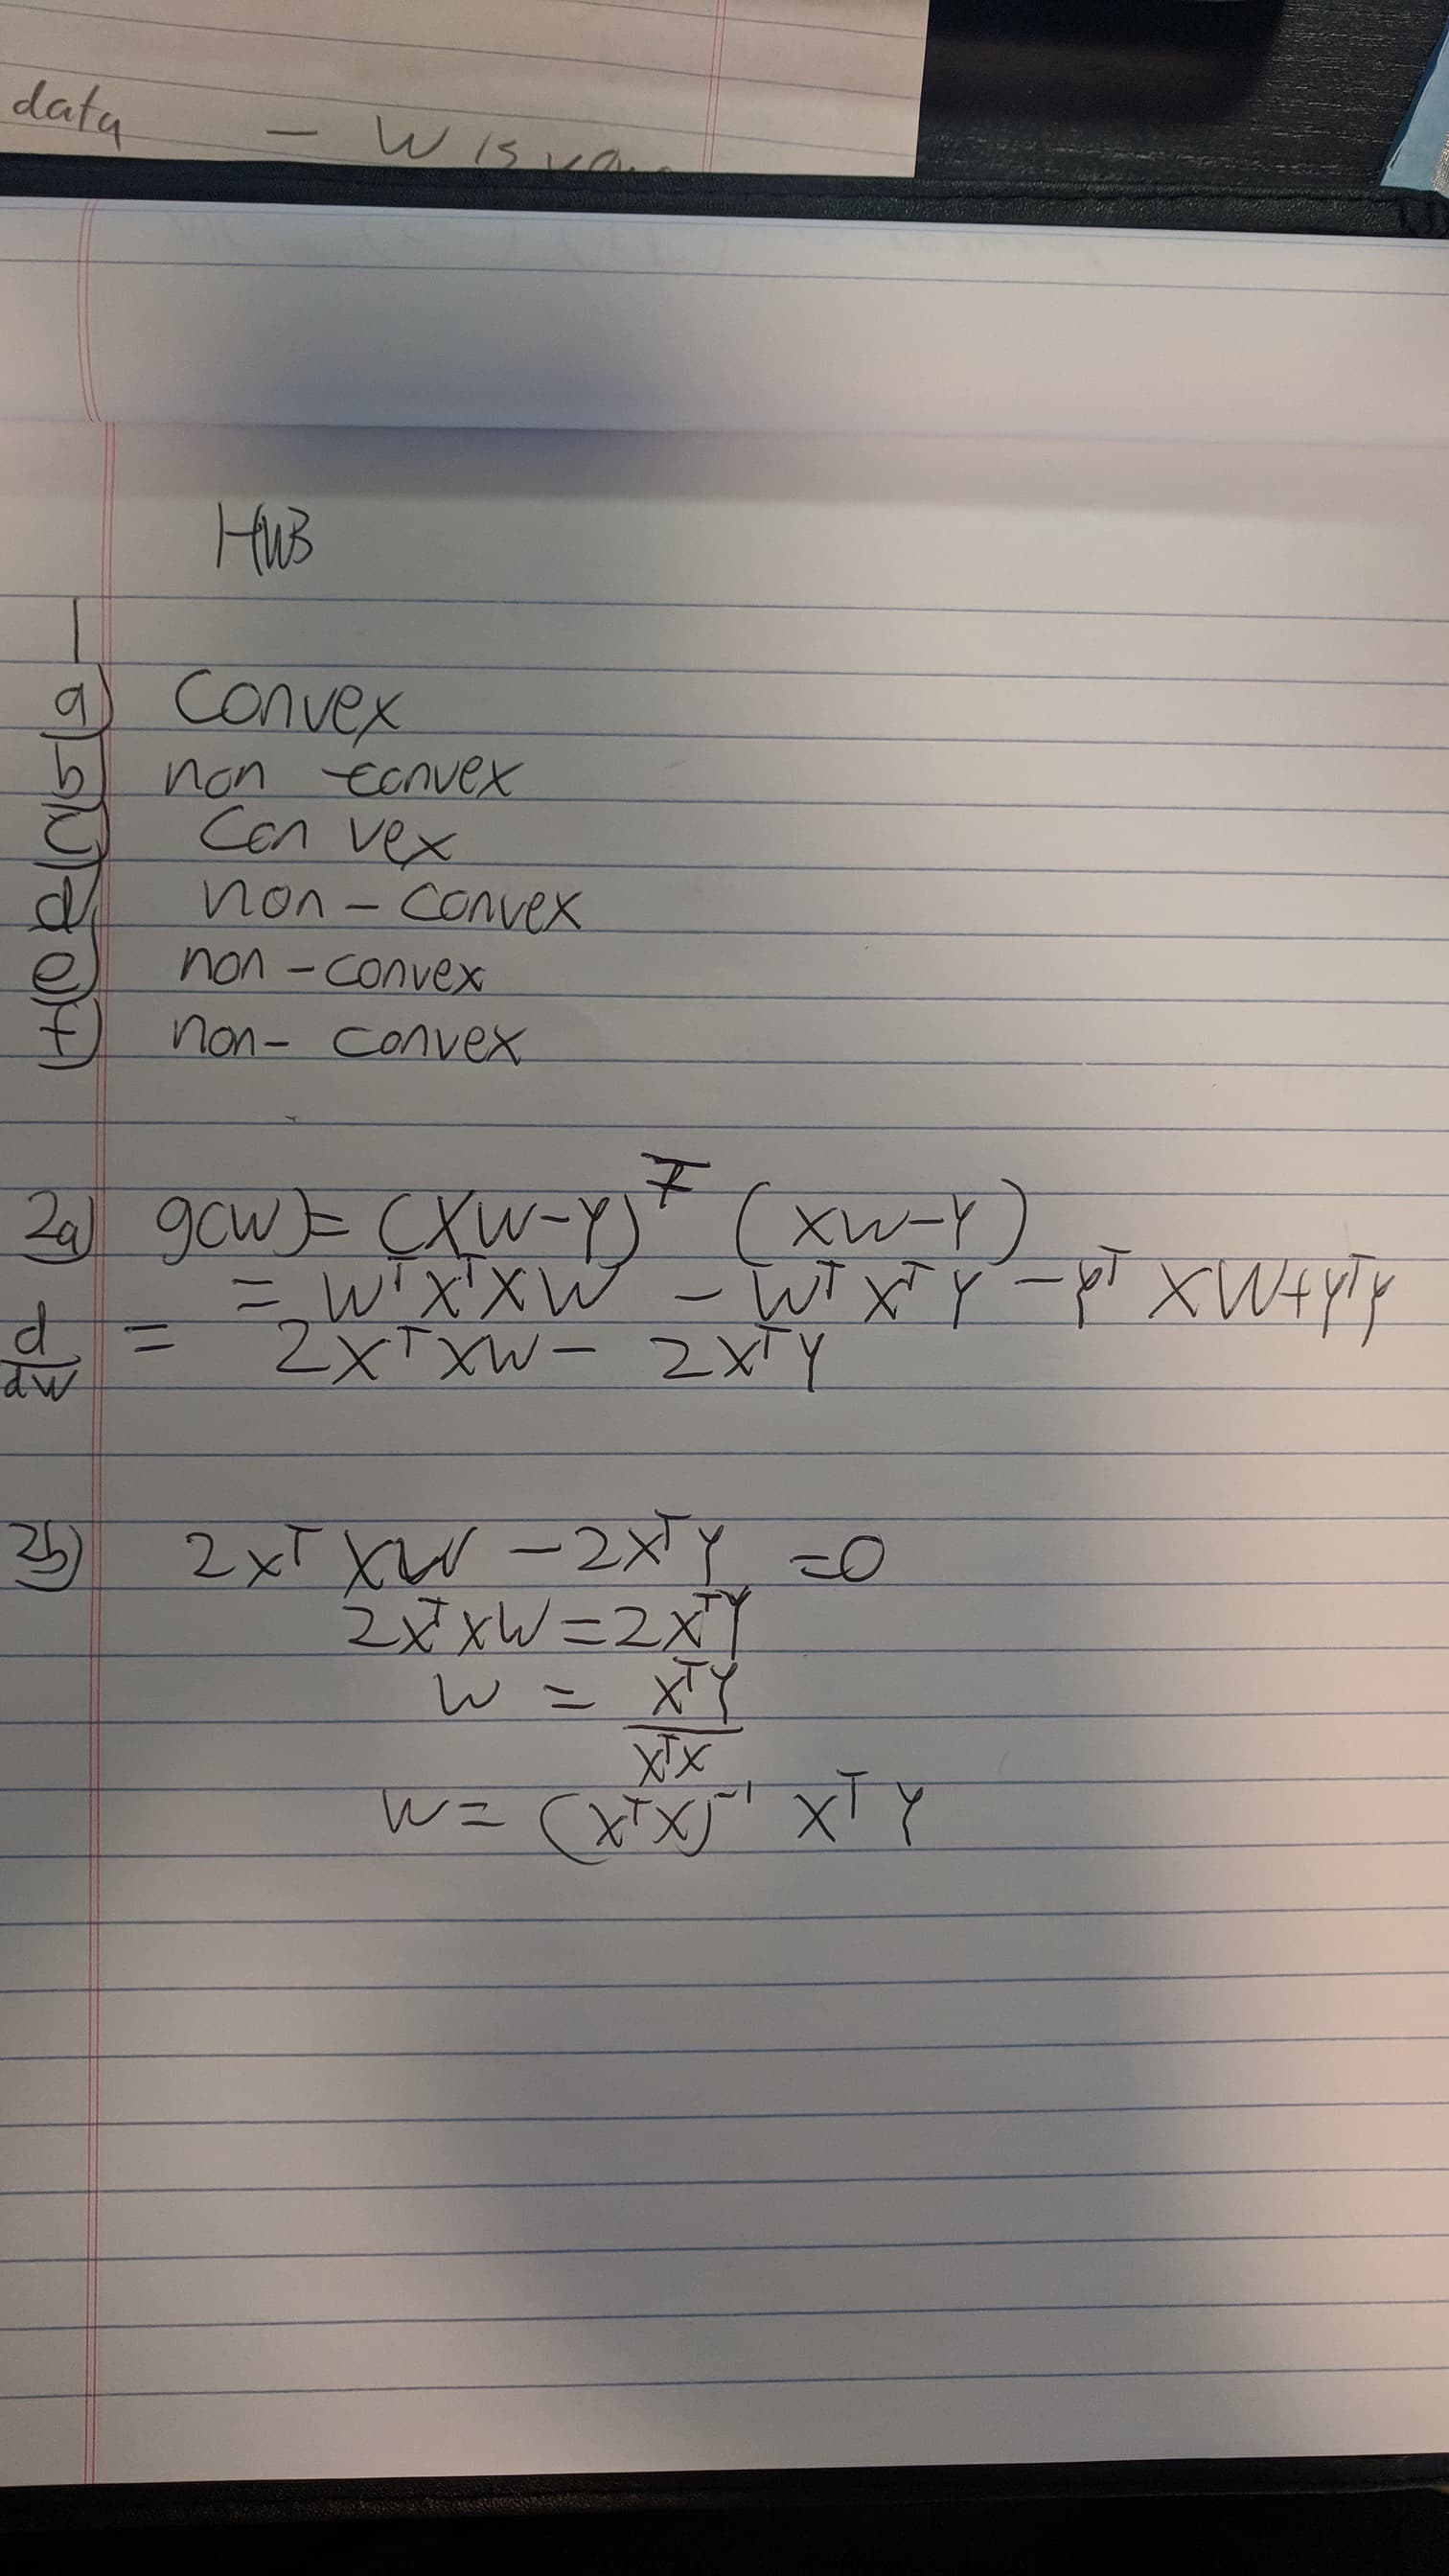 data — W is
HW3
1
a) Convex
b) non -convex
c) Convex
d) non-convex
e) non-convex
f) non-convex
2a) g(w)= (XW-Y)ᵀ (XW-Y)
= WᵀXᵀXW - WᵀXᵀY - YᵀXW+YᵀY
d/dw = 2XᵀXW - 2XᵀY
2b) 2XᵀXW - 2XᵀY =0
2XᵀXW=2XᵀY
W = XᵀY/XᵀX
W= (XᵀX)⁻¹ XᵀY